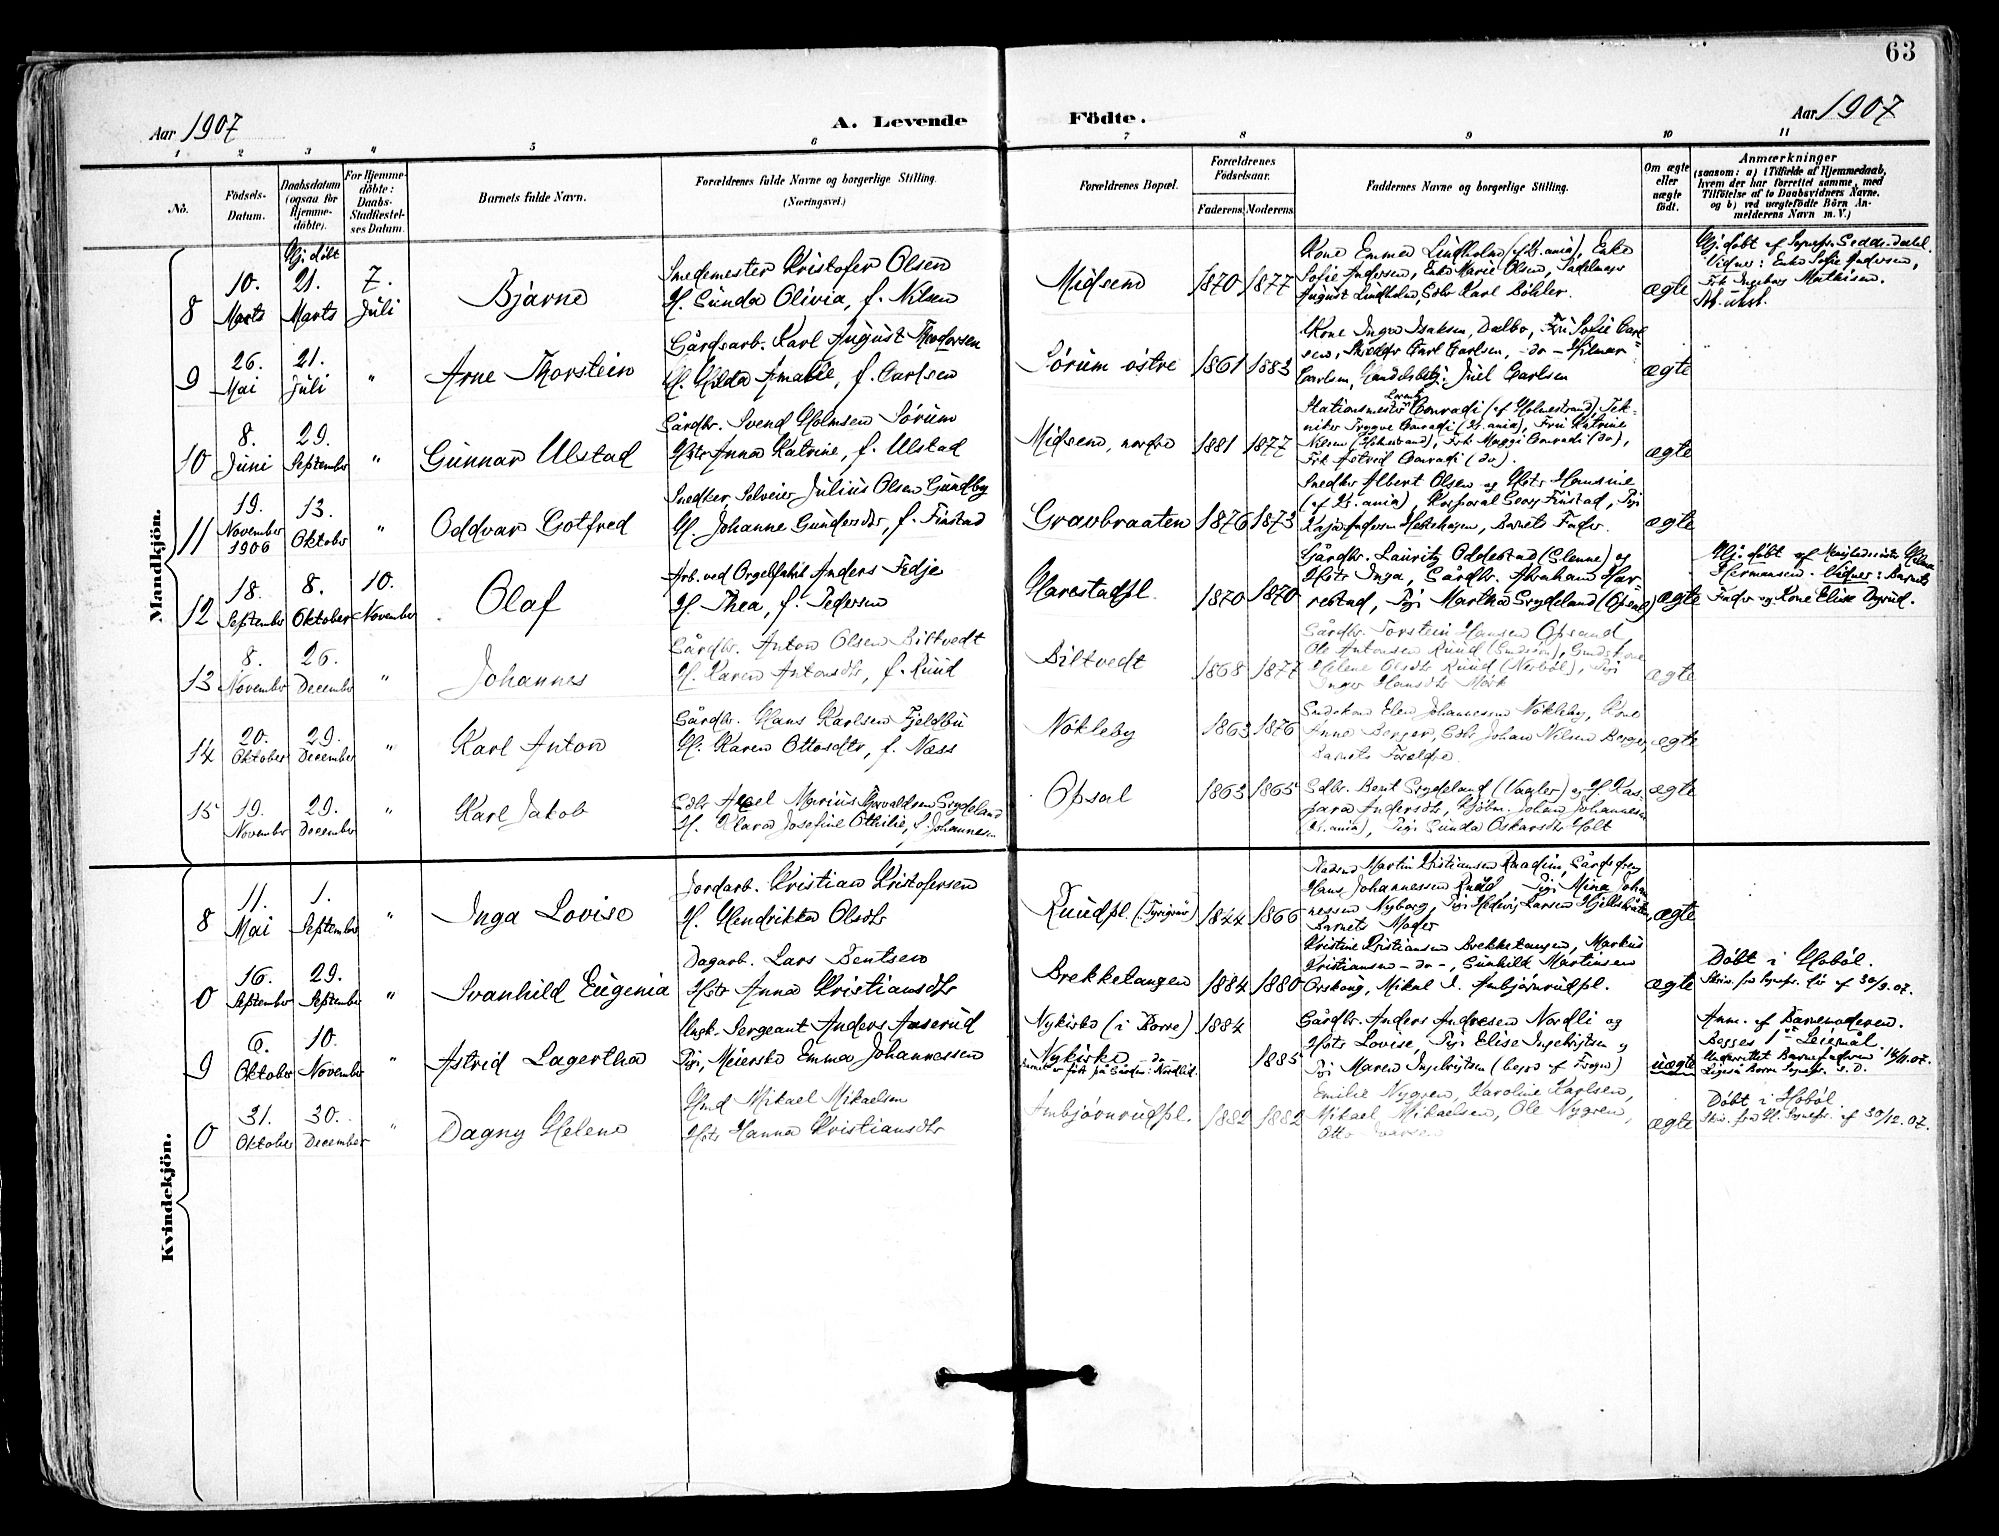 63
Aar 1907
A. Levende
Födte.
Aar 1907
1 2 3 4 5 6 7 8 9 10 11
No.
Födsels-
Datum.
Daabsdatum
(ogsaa for
Hjemme-
döbte).
For Hjemme-
döbte:
Daabs-
Stadfæstel-
ses Datum.
Barnets fulde Navn.
Forældrenes fulde Navne og borgerlige Stilling.
(Næringsvei.)
Forældrenes Bopæl.
Forældrenes
Födselsaar.
Faderens. Moderens.
Faddernes Navne og borgerlige Stilling.
Om ægte
eller
uægte
födt.
Anmærkninger
(saasom: a) i Tilfælde af Hjemmedaab,
hvem der har forrettet samme, med
Tilföielse af to Daabsvidners Navne.
og b) ved uægtefödte Börn An-
melderens Navn m. V.)
Mandkjön.
8
10.
Marts
Hj. døbt
21.
Marts
7.
Juli
Bjarne
Smedemester Kristofer Olsen
H. Gunda Olivia, f. Nilsen
Midsem
1870 1877
Kone Emma Lindholm (af Kr.ania), Enke
Sofie Andersen, Enke Marie Olsen, Sadelmager
August Lindholm, Sdbr Karl Bøhler.
ægte
Hj. døbt af Sogneprs.
Vidner: Enke Sofie Andersen,
Frk Ingeborg Mathisen.
9
26.
Mai
21.
Juli
"
Arne Thorstein
Gårdsarb. Karl August Theodorsen
H. Hilda Amalie, f. Carlsen
Sørum østre
1861 1883
Kone Inga Isaksen, Dælbo, Fru Sofie Carl-
sen, Carl Carlsen, -do- Hilmar
Carlsen, Handelsbetj. Juel Carlsen
ægte
10
8.
Juni
29.
September
"
Gunnar Ulstad
Gårdbr. Svend Holmsen Sørum
Hstr Anna Katrine, f. Ulstad
Midsem, nordre
1881 1877
Stationsmester Conradi (af Holmestrand), Tek-
niker Trygve Conradi (Kr.ania), Fru Katrine
Nilsen (Holmestrand), Frk Maggi Conradi (do),
Frk Astrid Conradi (do).
ægte
11
19.
November
1906
13.
Oktober
"
Oddvar Gotfred
Snedker Julius Olsen Gundby
H. Johanne Gundersdtr, f. Finstad
Gravbraaten
1876 1873
Snedker Albert Olsen og Hstr Hansine
(af Kr.ania), Korporal Georg Finstad, Pige
Kaja Andersen, Barnets Fader.
ægte
12
18.
September
8.
Oktober
10.
November
Olaf
Arb. ved Orgelfabrik Anders Fedje
H. Thea, f. Pedersen
Harestadpl.
1870 1870
Gårdbr. Lauritz Oddestad (Glenne) og
Hstr Inga, Gårdbr. Abraham Har-
restad, Pige Martha Grydeland
ægte
Hj. døbt af
Hermansen. Vidner: Barnets
Fader og Kone Elise Dyrud.
13
8.
November
26.
December
"
Johannes
Gårdbr. Anton Olsen Biltvedt
H. Karen Antonsdtr, f. Ruud
Biltvedt
1868 1877
Gårdbr. Torstein Hansen Opsand
Ole Antonsen Ruud, Gmdskone
Helene Olsdtr Ruud, Pige
Inger Hansdtr Mørk
ægte
14
20.
Oktober
29.
December
"
Karl Anton
Gårdbr. Hans Karlsen Fjeldbu
H. Karen Ottosdtr, f. Næss
Nökleby
1863 1876
Johannessen Nökleby, Kone
Anna Berger, Gdbr Johan Nilsen Berger,
Barnets Forældre.
ægte
15
19.
November
29.
December
"
Karl Jakob
Gdbr Axel Marius Thorvaldsen Grydeland
H. Klara Josefine Othilie, f. Johannesen
Opsal
1863 1865
Gdbr. Berit Grydeland (Vagler) og H. Kas-
para Andersdtr, Kjøbm. Johan Johannesen
(Kr.ania), Pige Gunda Oskarsdtr Holt
ægte
Kvindekjön.
8
11.
Mai
1.
September
"
Inga Lovise
Jordarb. Kristian Kristofersen
H. Hendrikke Olsdtr
Ruudpl.
1844 1866
Martin Kristiansen, Gårdsdreng
Hans Johannessen Ruud Pige Mina Johan-
nessen Nyborg, Pige Hedvig Larsen
Barnets Moder
ægte
0
16.
September
29.
September
"
Svanhild Eugenia
Dagarb. Lars Bentsen
Hstr Anna Kristiansdtr
Brekketangen
1884 1880
Kristine Kristiansen Brekketangen, Markus
Kristiansen -do-, Gunhild Martinsen
Orskoug, Mikal I. Ambjørnrudpl.
ægte
Døbt i Hobøl.
Skriv. fra Sognepr. dér af 30/9.07.
9
6.
Oktober
10.
November
"
Astrid Lagertha
Ungk. Sergeant Anders Anserud
Pige, Meierske Emma Johannessen
Nykirke (i Borre)
Nykirke -do-
1884
1885
Gårdbr. Anders Andresen Nordli og
Hstr Lovise, Pige Elise Ingebrigtsen og
Pige Maren Ingebrigtsen
uægte
Anm. af Barnemoderen.
Begges 1ste Leiermål.
Underrettet Barnefaderen 14/11.07.
0
31.
Oktober
30.
December
"
Dagny Helene
Gmd Mikael Mikaelsen
Hstr Hanna Kristiansdtr
Ambjørnrudpl.
1882 1882
Emilie Nygren, Karoline Karlsen,
Mikael Mikaelsen, Ole Nygren,
Otto Ivarsen
ægte
Døbt i Hobøl
Skriv. fra Sognepr. af 30/12.07.